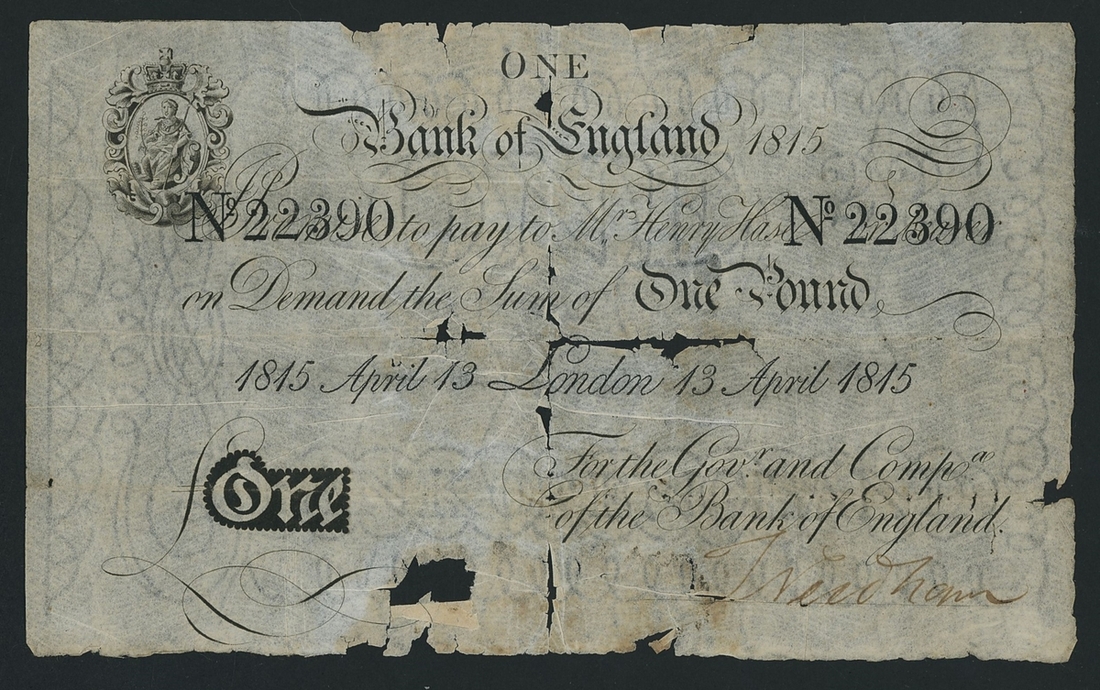 ONE
Bank of England 1815
Nº 22390 to pay to Mr. Henry Hase Nº 22390
on Demand the Sum of One Pound
1815 April 13 London 13 April 1815
For the Govr. and Compa.
of the Bank of England.
One